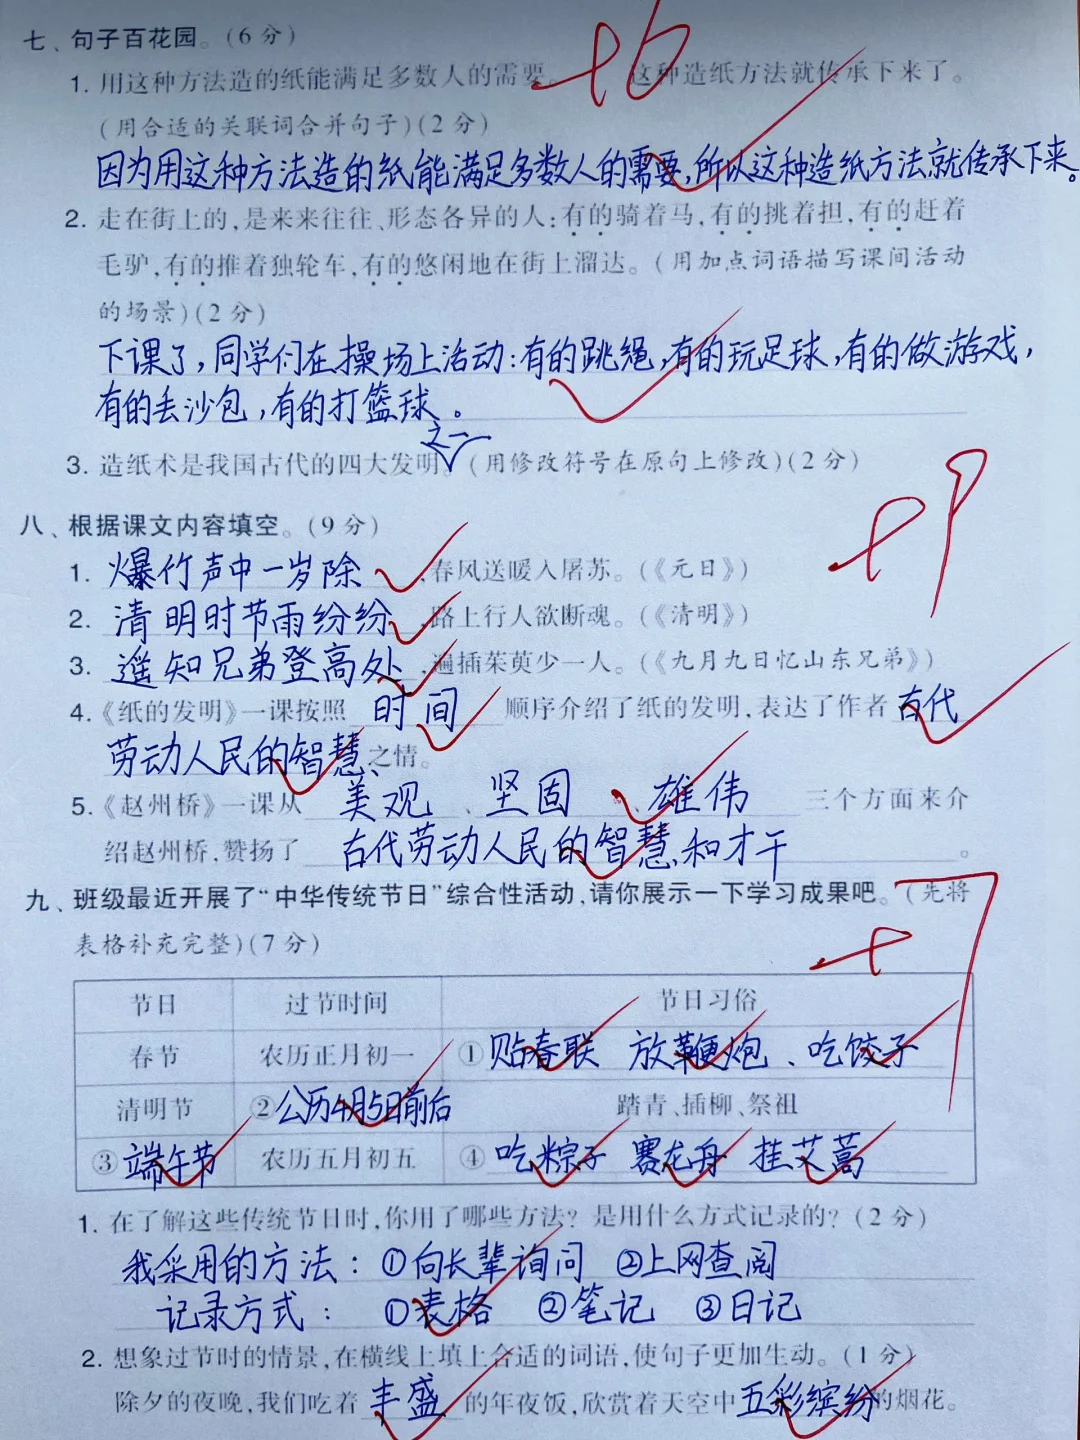 七、句子百花园。(6分) +6
1. 用这种方法造的纸能满足多数人的需要。 这种造纸方法就传承下来了。
(用合适的关联词合并句子)(2分)
因为用这种方法造的纸能满足多数人的需要,所以这种造纸方法就传承下来。
2. 走在街上的,是来来往往、形态各异的人:有的骑着马,有的挑着担,有的赶着
毛驴,有的推着独轮车,有的悠闲地在街上溜达。(用加点词语描写课间活动
的场景)(2分)
下课了,同学们在操场上活动:有的跳绳,有的玩足球,有的做游戏,
有的丢沙包,有的打篮球。
之一
3. 造纸术是我国古代的四大发明。(用修改符号在原句上修改)(2分)
八、根据课文内容填空。(9分) +9
1. 爆竹声中一岁除,春风送暖入屠苏。(《元日》)
2. 清明时节雨纷纷,路上行人欲断魂。(《清明》)
3. 遥知兄弟登高处,遍插茱萸少一人。(《九月九日忆山东兄弟》)
4.《纸的发明》一课按照 时间 顺序介绍了纸的发明,表达了作者 古代
劳动人民的智慧、之情。
5.《赵州桥》一课从 美观、坚固、雄伟 三个方面来介
绍赵州桥,赞扬了 古代劳动人民的智慧和才干。
九、班级最近开展了“中华传统节日”综合性活动,请你展示一下学习成果吧。(先将
表格补充完整)(7分) +7
节日 过节时间 节日习俗
春节 农历正月初一 ①贴春联 放鞭炮、吃饺子
清明节 ②公历4月5日前后 踏青、插柳、祭祖
③端午节 农历五月初五 ④吃粽子 赛龙舟 挂艾蒿
1. 在了解这些传统节日时,你用了哪些方法?是用什么方式记录的?(2分)
我采用的方法:①向长辈询问 ②上网查阅
记录方式: ①表格 ②笔记 ③日记
2. 想象过节时的情景,在横线上填上合适的词语,使句子更加生动。(1分)
除夕的夜晚,我们吃着 丰盛 的年夜饭,欣赏着天空中五彩缤纷的烟花。